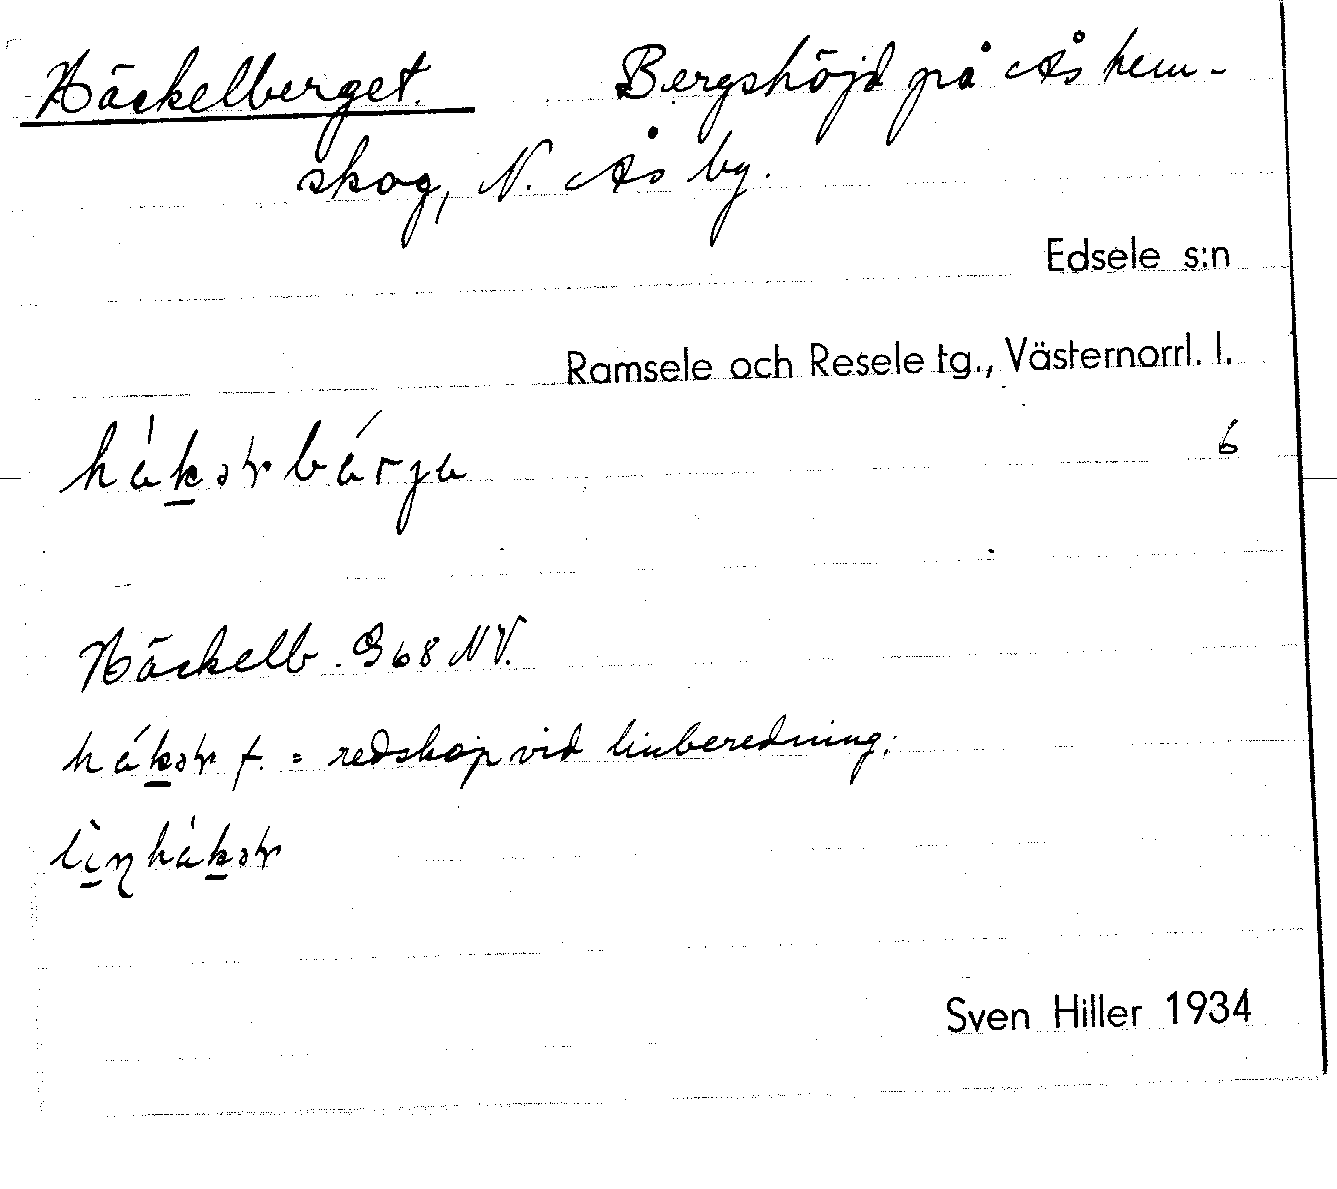 Häckelberget. Bergshöjd på Ås hem-
skog, N. Ås by.
Edsele s:n
Ramsele och Resele tg., Västernorrl. l.
hákər bárja 6
Häckelb. G68 NV.
hákər f. = redskap vid linberedning;
li̱ŋhákər
Sven Hiller 1934